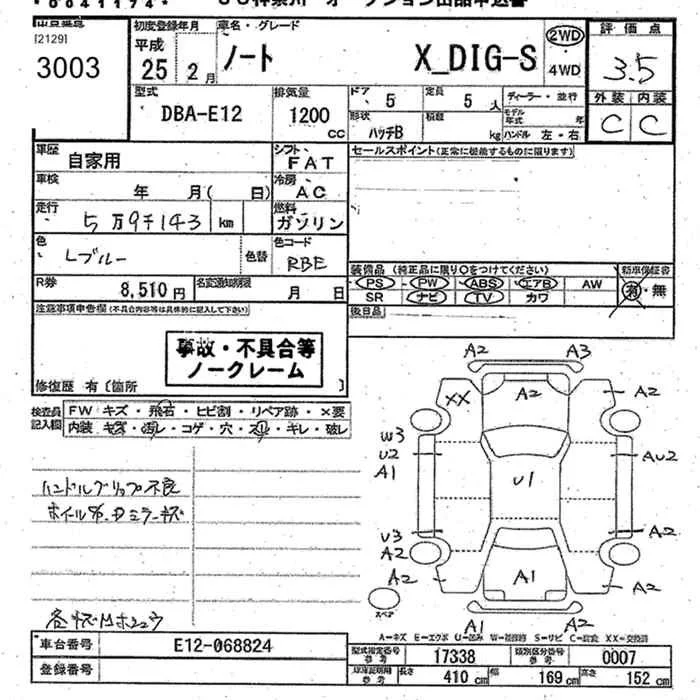 *0041174*
[2129]
3003
初度登録年月
平成
25 2月
車名・グレード
ノート X_DIG-S
2WD
4WD
評価点
3.5
外装 内装
C C
型式
DBA-E12
排気量
1200 cc
ドア 5
定員 5 人
ディーラー・並行
形状 ハッチB
積載 kg
モデル年式 年
ハンドル 左・右
車歴 自家用
シフト FAT
セールスポイント(正常に機能するものに限ります)
車検 年 月( 日)
冷房 AC
走行 5万9千143 km
燃料 ガソリン
色 Lブルー
色替
色コード RBE
装備品(純正品に限り○をつけてください)
新車保証書
PS PW ABS エアB AW
有・無
SR ナビ TV カワ
R券 8,510円
名変通知期限 月 日
後日品
注意事項申告欄(不具合内容等は具体的に記入して下さい)
事故・不具合等
ノークレーム
修復歴 有〔箇所 〕
検査員記入欄
FW キズ・飛石・ヒビ割・リペア跡・×要
内装 キズ・汚レ・コゲ・穴・スリ・キレ・破レ
ハンドルグリップ不良
A2 A3
XX A2 A2
W3
U2
A1
U1
AU2
U3
A2
A2
A2
A1
A2
スペア
A1 A2
A=キズ E=エクボ U=凹み W=補修跡 S=サビ C=腐蝕 XX=交換済
車台番号 E12-068824
登録番号
型式指定番号 参考 17338
類別区分番号 参考 0007
車庫証明用 参考
長さ 410 cm
幅 169 cm
高さ 152 cm